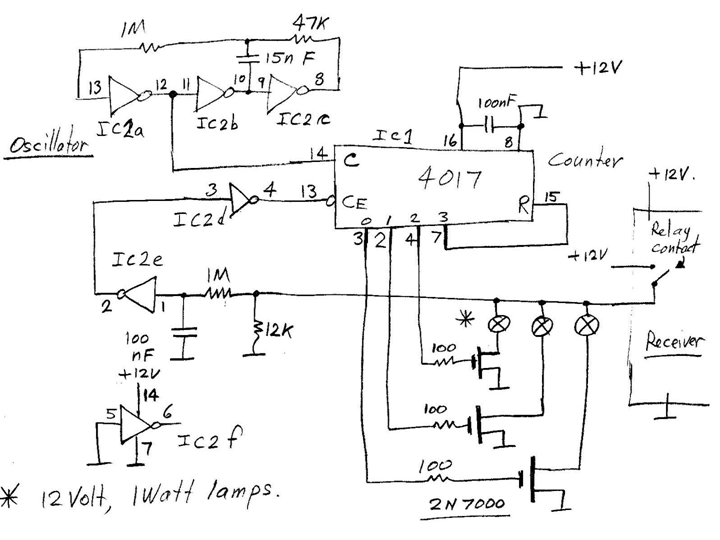 1M
47K
15nF
13
12
11
10
9
8
IC2a
IC2b
IC2c
Oscillator
+12V
100nF
16
8
IC1
14
C
4017
Counter
3
4
13
CE
R
15
IC2d
0
1
2
3
3
2
4
7
+12V.
Relay
contact
+12V
IC2e
2
1
1M
12K
100
nF
Receiver
*
100
100
100
2N7000
+12V
14
5
6
7
IC2f
* 12Volt, 1Watt lamps.